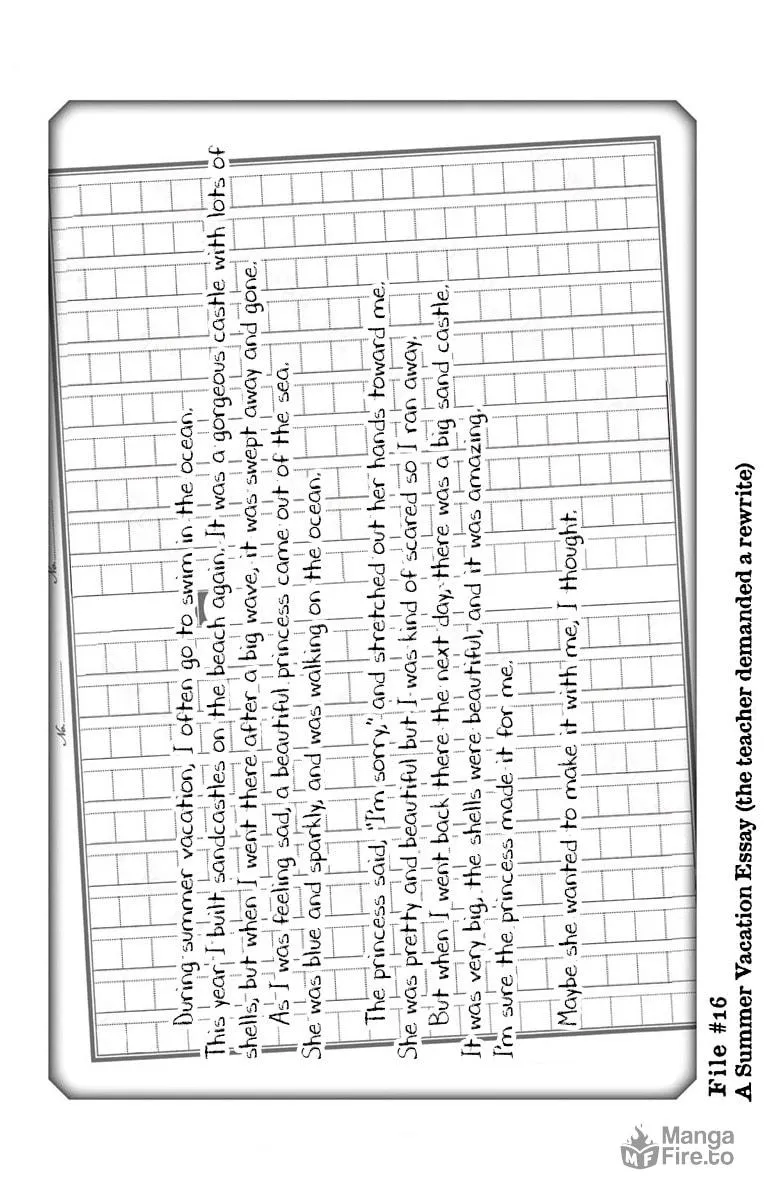 No.
No.
During summer vacation, I often go to swim in the ocean.
This year I built sandcastles on the beach again. It was a gorgeous castle with lots of
shells, but when I went there after a big wave, it was swept away and gone.
As I was feeling sad, a beautiful princess came out of the sea.
She was blue and sparkly, and was walking on the ocean.
The princess said, "I'm sorry," and stretched out her hands toward me.
She was pretty and beautiful but I was kind of scared so I ran away.
But when I went back there the next day, there was a big sand castle.
It was very big, the shells were beautiful, and it was amazing.
I'm sure the princess made it for me.
Maybe she wanted to make it with me, I thought.
File #16
A Summer Vacation Essay (the teacher demanded a rewrite)
MF
Manga
Fire.to